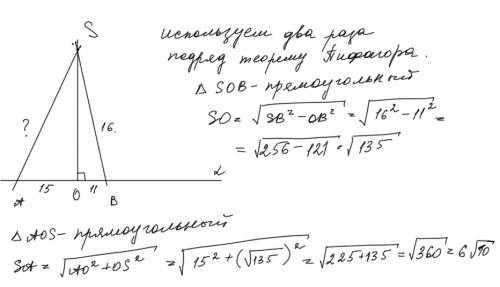 S
используем два раза
подряд теорему Пифагора.
△ SOB - прямоугольный
SO = √(SB² - OB²) = √(16² - 11²) =
= √(256 - 121) = √135
?
16.
15
11
α
A
O
B
△ AOS - прямоугольный
SA = √(AO² + OS²) = √(15² + (√135)²) = √(225 + 135) = √360 = 6√10